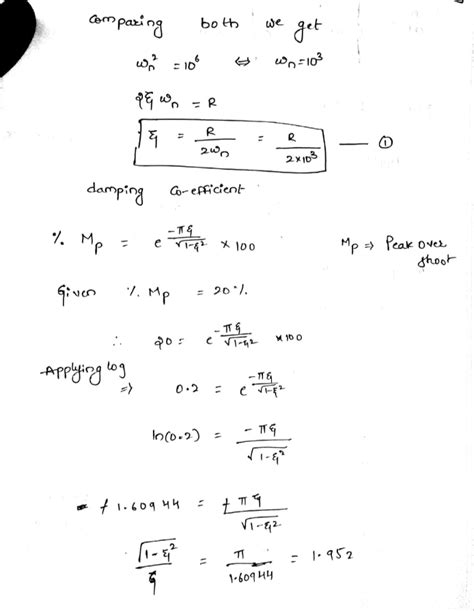 Comparing both we get
ωn² = 10⁶ ⇔ ωn = 10³
2ξ ωn = R
ξ = R / 2ωn = R / 2×10³ — ①
damping Co-efficient
% Mp = e^(-πξ/√(1-ξ²)) × 100 Mp ⇒ Peak over shoot
Given % Mp = 20%.
∴ 20 = e^(-πξ/√(1-ξ²)) ×100
Applying log
⇒ 0.2 = e^(-πξ/√(1-ξ²))
ln(0.2) = -πξ / √(1-ξ²)
+ 1.60944 = + πξ / √(1-ξ²)
√(1-ξ²) / ξ = π / 1.60944 = 1.952